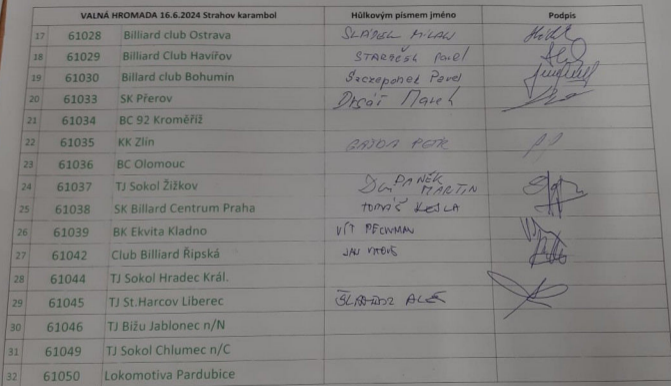 VALNÁ HROMADA 16.6.2024 Strahov karambol Hůlkovým písmem jméno Podpis
17 61028 Billiard club Ostrava SLÁDEK MILAN
18 61029 Billiard Club Havířov Pavel
19 61030 Billard club Bohumín Szczeponek Pavel
20 61033 SK Přerov Marek
21 61034 BC 92 Kroměříž
22 61035 KK Zlín PETR
23 61036 BC Olomouc
24 61037 TJ Sokol Žižkov DANĚK MARTIN
25 61038 SK Billard Centrum Praha TOMÁŠ
26 61039 BK Ekvita Kladno VÍT PECHMAN
27 61042 Club Billiard Řipská JAN
28 61044 TJ Sokol Hradec Král.
29 61045 TJ St.Harcov Liberec
30 61046 TJ Bižu Jablonec n/N
31 61049 TJ Sokol Chlumec n/C
32 61050 Lokomotiva Pardubice